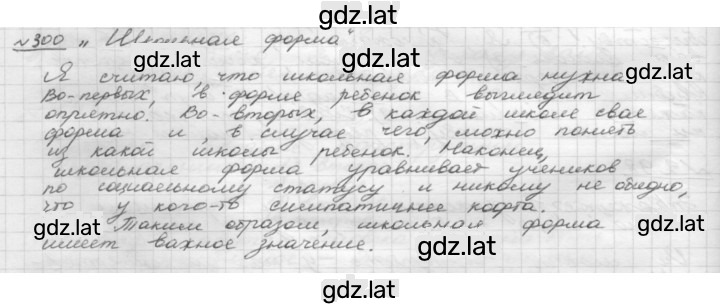 gdz.lat
№300 „Школьная форма“
gdz.lat gdz.lat gdz.lat
Я считаю, что школьная форма нужна.
Во-первых, в форме ребенок выглядит
опрятно. Во-вторых, в каждой школе своя
форма и, в случае чего, можно понять
из какой школы ребенок. Наконец,
школьная форма уравнивает учеников
по социальному статусу и никому не обидно,
что у кого-то симпатичнее кофта.
Таким образом, школьная форма
имеет важное значение.
gdz.lat gdz.lat gdz.lat
gdz.lat